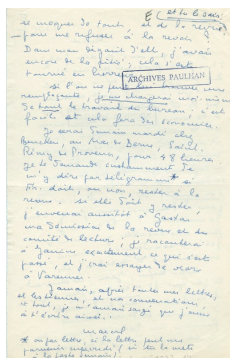 E (et toi le désir)
se moque de tout et de la revue
pour me refuser à la revoir
Dans mon dégoût d'elle, j'avais
encore de la pitié; cela s'est
tourné en
ARCHIVES PAULHAN
si l'on ne peut lui trouver une
remplaçante, je me chargerai moi-même
de tout le travail du bureau; c'est
facile et cela fera des économies.
Je serai demain mardi chez
au Mas de St. Paul-
Rémy de Provence, pour 48 heures
Je te demande instamment de
m'y dire par télégramme si
doit, ou non, rester à la
revue. Si elle doit y rester,
j'enverrai aussitôt à Gaston
ma démission de la revue et du
comité de lecture; je raconterai
à exactement ce qui s'est
passé, et j'irai essayer de vivre
à Varenne.
Jamais, après toutes mes lettres,
et les tiennes, et nos conversations,
et tout, je n'aurais songé que j'aurais
à t'écrire ainsi.
marcel
ou par lettre, si la lettre peut me
parvenir mercredi (si tu la mets
à la poste demain)